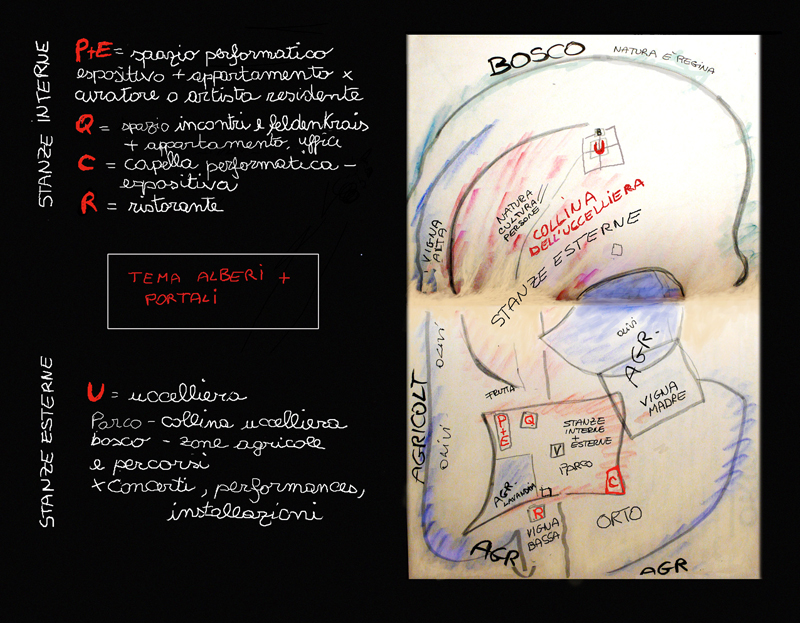 STANZE INTERNE
P+E = spazio performatico
espositivo + appartamento x
curatore o artista residente
Q = spazio incontri e feldenkrais
+ appartamento, uffici
C = capella performatica -
espositiva
R = ristorante
TEMA ALBERI +
PORTALI
STANZE ESTERNE
U = uccelliera
Parco - collina uccelliera
bosco - zone agricole
e percorsi
+ concerti, performances,
installazioni
BOSCO
NATURA È REGINA
B
U
NATURA
CULTURA
PERSONE
COLLINA
DELL'UCCELLIERA
STANZE ESTERNE
VIGNA
ALTA
OLIVI
OLIVI
AGR.
AGRICOLT
OLIVI
FRUTTA
VIGNA
MADRE
P+E
Q
STANZE
INTERNE
+
ESTERNE
V
PARCO
C
AGR.
LAVANDA
R
VIGNA
BASSA
ORTO
AGR
AGR